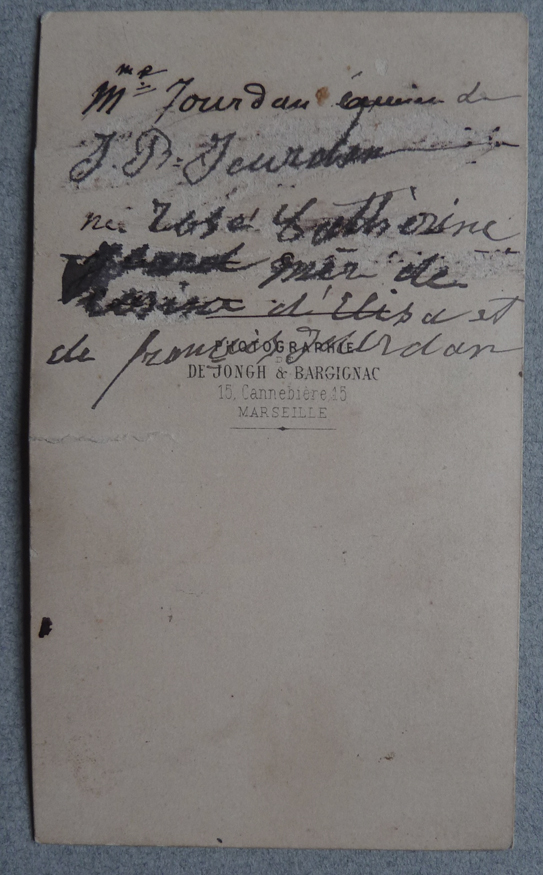 Mme Jourdan de
J. P. Jourdan
née Rose Catherine
mère de
d'Elisa et
de françois Jourdan
PHOTOGRAPHIE
DE JONGH & BARGIGNAC
15, Cannebière, 15
MARSEILLE